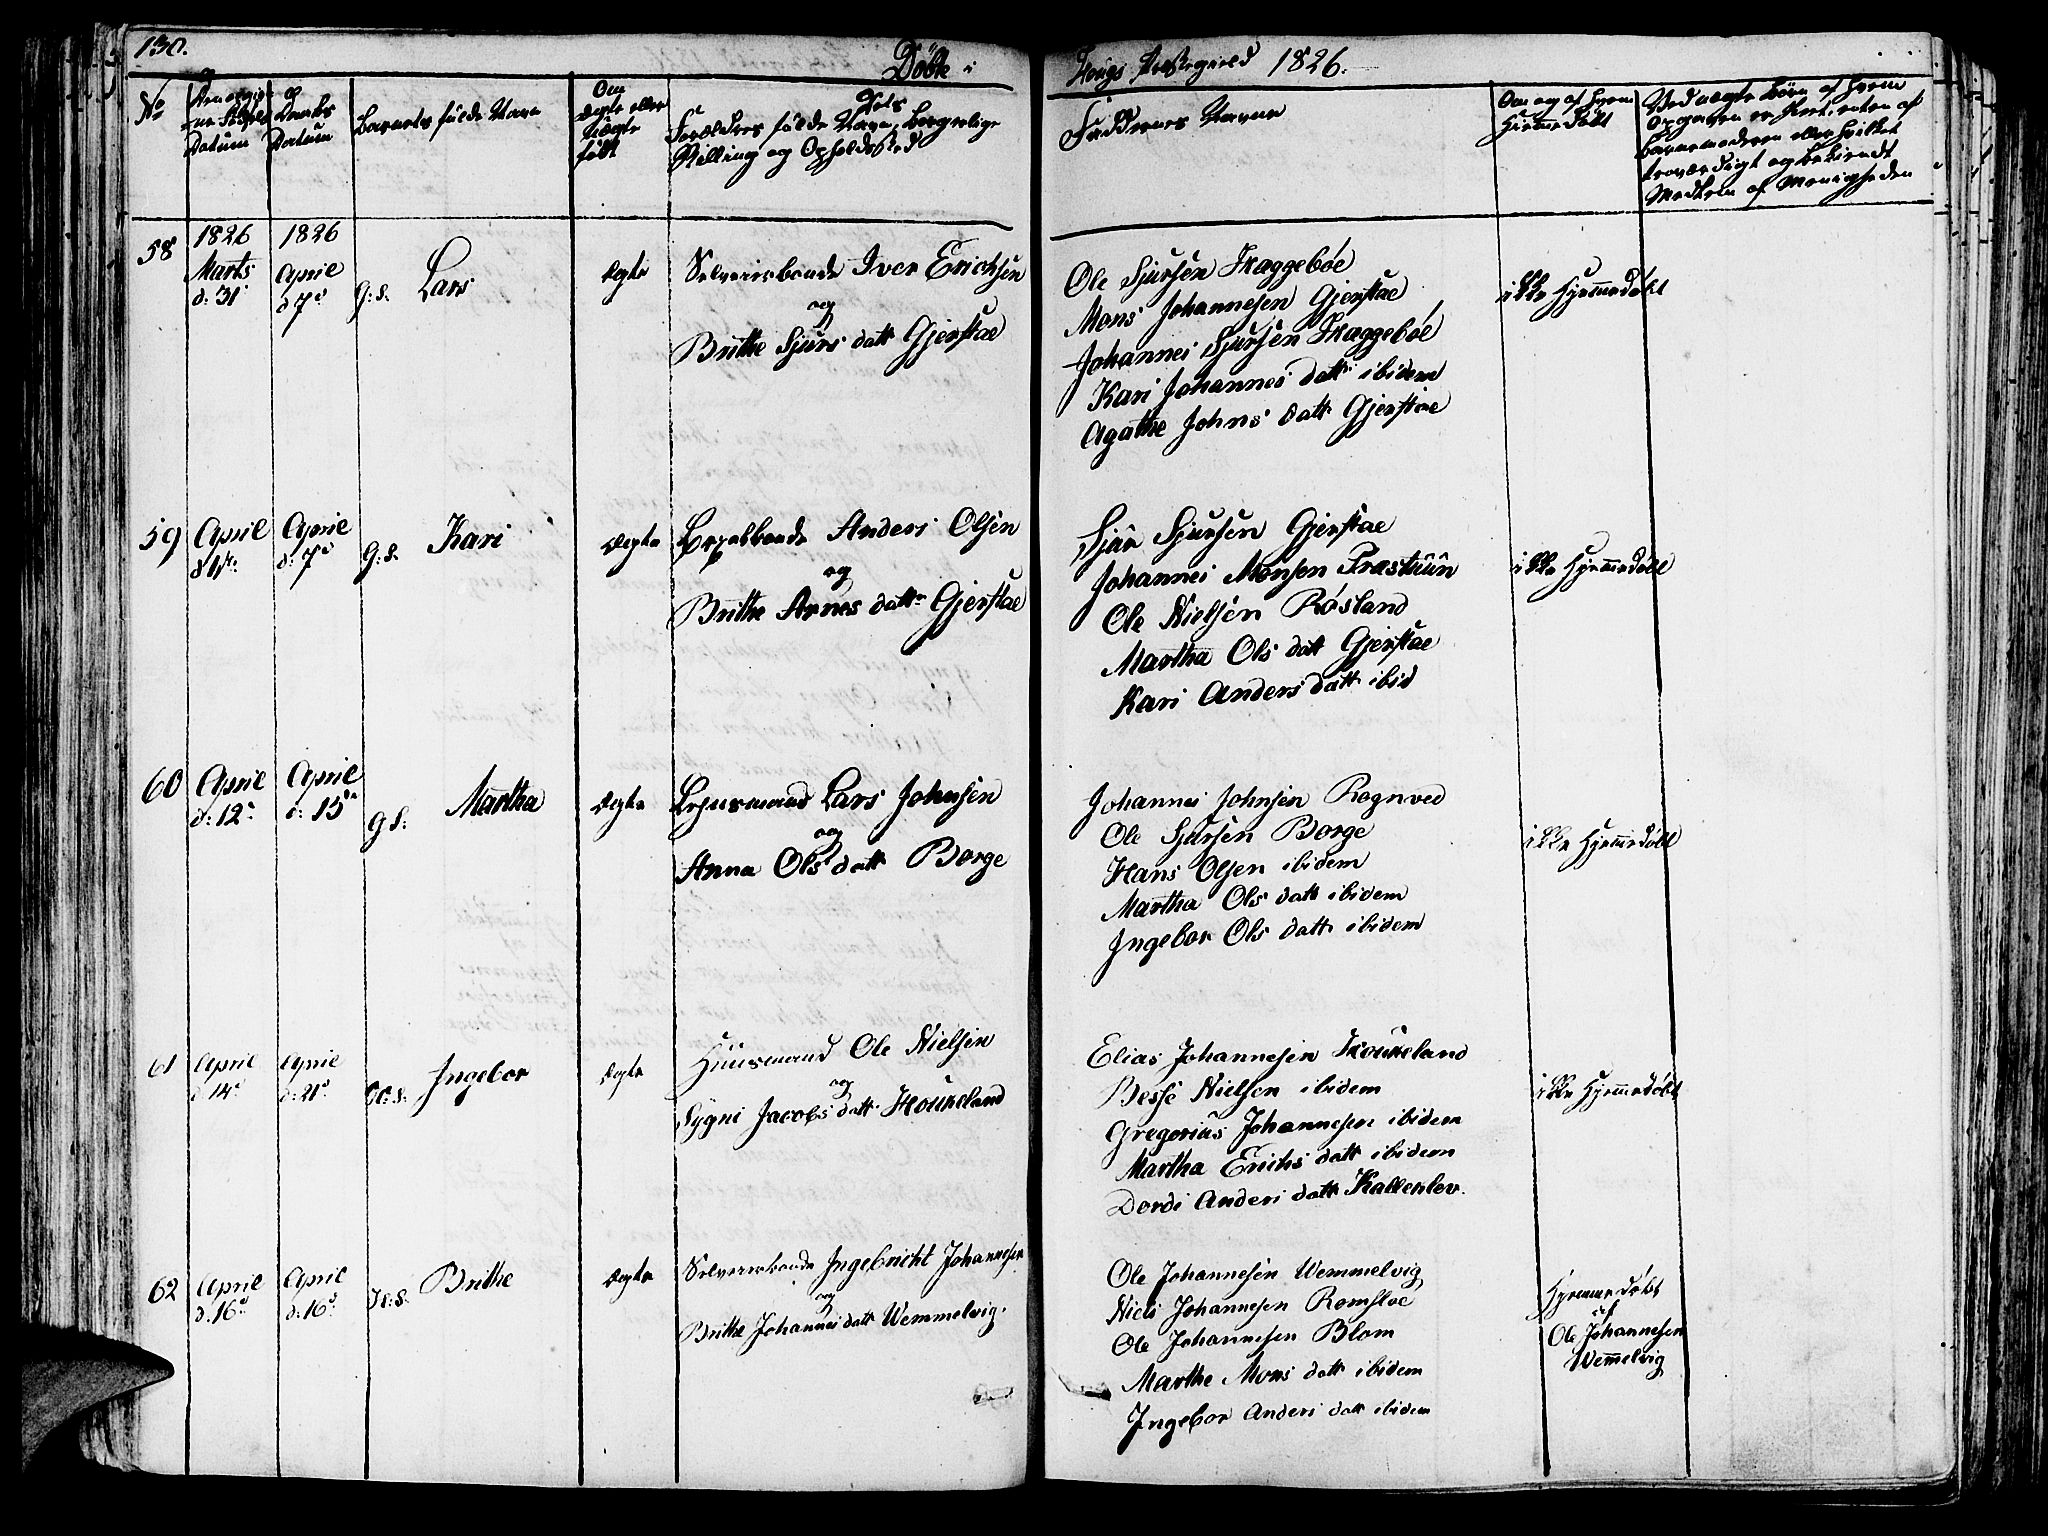 130.
Døbte i
Hougs Præstegield 1826.
No
Datum
Daabs
Datum
Barnets fulde Navn
Om
ægte eller
uægte
født
Forældres fulde Navn, borgerlige
Stilling og Opholdssted
Faddernes Navne
Om og af hvem
hiemmedøbt
Ved uægte Børn af hvem
Opgaven er skeet, enten af
Barnemoderen eller hvilket
troværdigt og bekiendt
Medlem af Menigheden
58
1826
Marts
d: 31
1826
April
d 7d
G: S.
Lars
ægte
Selveierbonde Iver Erichsen
og
Brithe Sjurs datt Gjerstae
Ole Sjursen Skaggebøe
Mons Johannesen Gjerstae
Johannes Sjursen Skaggebøe
Kari Johannes datt ibidem
Agathe Johns datt Gjerstae
ikke hjemmedøbt
59
April
April
d: 7d
G: S.
Kari
ægte
Anders Olsen
og
Brithe Arnes datt Gjerstae
Sjur Sjursen Gjerstae
Johannes Monsen Præstuun
Ole Nielsen Røsland
Martha Ols datt Gjerstae
Kari Anders datt ibid
ikke hjemmedøbt
60
April
d: 12
April
d: 15
G S:
Martha
ægte
Lars Johnsen
og
Anna Ols datt Borge
Johannes Johnsen Rognved
Ole Sjursen Borge
Hans Olsen ibidem
Martha Ols datt ibidem
Ingebor Ols datt ibidem
ikke hjemmedøbt
61
April
d 14d
April
d: 21d
Ingebor
ægte
Huusmand Ole Nielsen
og
Sygni Jacobs datt Houkeland
Elias Johannesen Houkeland
Besse Nielsen ibidem
Gregorius Johannesen ibidem
Martha Erichs datt ibidem
Dordi Anders datt Kallenlev.
ikke hjemmedøbt
62
April
d. 16d
April
d: 16d
Brithe
ægte
Selveierbonde Ingebricht Johannesen
og
Brithe Johannes datt Wemmelvig.
Ole Johannesen Wemmelvig
Niels Johannesen Romsloe
Ole Johannesen Blom
Marthe Mons datt ibidem
Ingebor Anders datt ibidem
Hjemmedøbt
af
Ole Johannesen
Wemmelvig